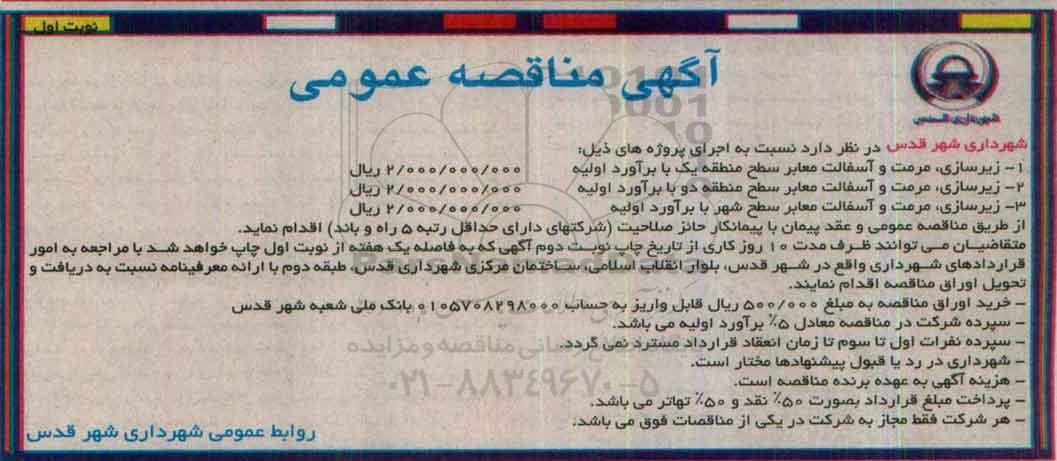 نوبت اول
آگهی مناقصه عمومی
شهرداری قدس
شهرداری شهر قدس در نظر دارد نسبت به اجرای پروژه های ذیل:
۱- زیرسازی، مرمت و آسفالت معابر سطح منطقه یک با برآورد اولیه ۲/۰۰۰/۰۰۰/۰۰۰ ریال
۲- زیرسازی، مرمت و آسفالت معابر سطح منطقه دو با برآورد اولیه ۲/۰۰۰/۰۰۰/۰۰۰ ریال
۳- زیرسازی، مرمت و آسفالت معابر سطح شهر با برآورد اولیه ۲/۰۰۰/۰۰۰/۰۰۰ ریال
از طریق مناقصه عمومی و عقد پیمان با پیمانکار حائز صلاحیت (شرکتهای دارای حداقل رتبه ۵ راه و باند) اقدام نماید.
متقاضیان می توانند ظرف مدت ۱۰ روز کاری از تاریخ چاپ نوبت دوم آگهی که به فاصله یک هفته از نوبت اول چاپ خواهد شد با مراجعه به امور
قراردادهای شهرداری واقع در شهر قدس، بلوار انقلاب اسلامی، ساختمان مرکزی شهرداری قدس، طبقه دوم با ارائه معرفینامه نسبت به دریافت و
تحویل اوراق مناقصه اقدام نمایند.
- خرید اوراق مناقصه به مبلغ ۵۰۰/۰۰۰ ریال قابل واریز به حساب ۰۱۰۵۷۰۸۲۹۸۰۰۰ بانک ملی شعبه شهر قدس
- سپرده شرکت در مناقصه معادل ۵٪ برآورد اولیه می باشد.
- سپرده نفرات اول تا سوم تا زمان انعقاد قرارداد مسترد نمی گردد.
- شهرداری در رد یا قبول پیشنهادها مختار است.
- هزینه آگهی به عهده برنده مناقصه است.
- پرداخت مبلغ قرارداد بصورت ۵۰٪ نقد و ۵۰٪ تهاتر می باشد.
- هر شرکت فقط مجاز به شرکت در یکی از مناقصات فوق می باشد.
روابط عمومی شهرداری شهر قدس
ParsNamadData
۰۲۱-۸۸۳۴۹۶۷۰-۵